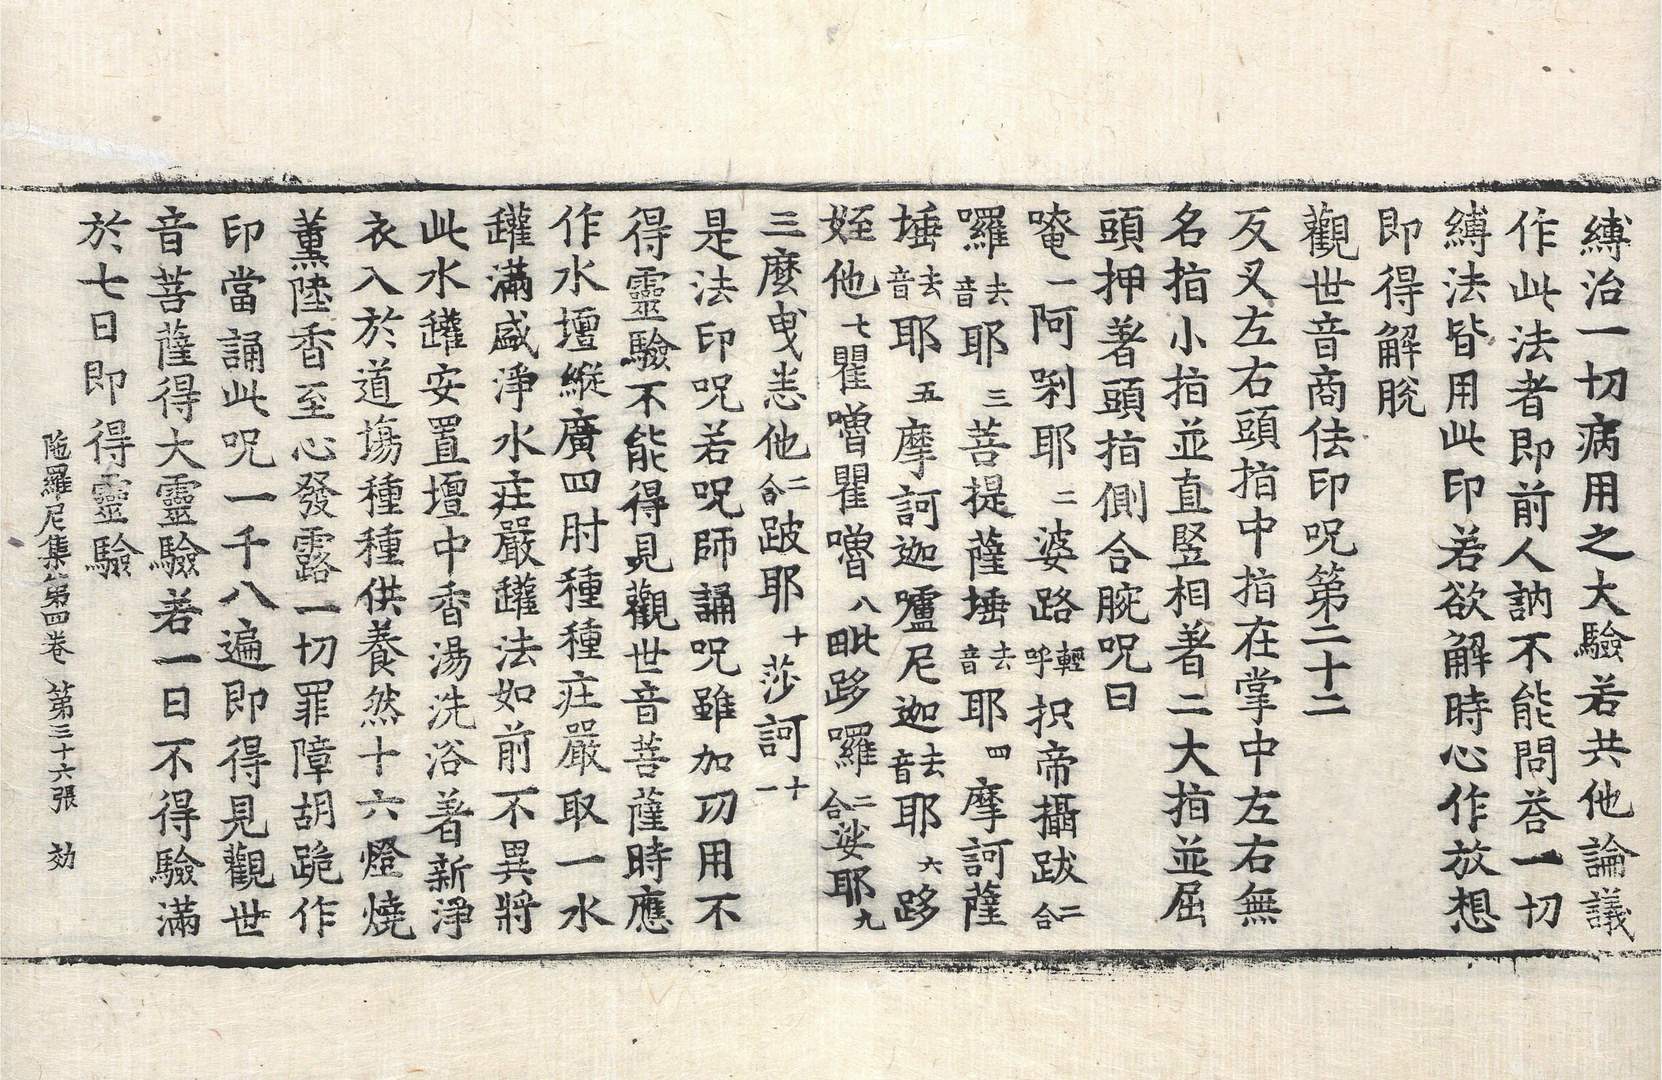 縛治一切病用之大驗若共他論議
作此法者即前人訥不能問荅一切
縛法皆用此印若欲解時心作放想
即得解脫
觀世音商佉印呪第二十二
反叉左右頭指中指在掌中左右無
名指小指並直竪相著二大指並屈
頭押著頭指側合腕呪曰
唵一阿唎耶二婆路輕呼抧帝攝跋二合
囉去音耶三菩提薩埵去音耶四摩訶薩
埵去音耶五摩訶迦嚧尼迦去音耶六跢
姪他七瞿嚕瞿嚕八毗跢囉二合娑耶九
三麼曳恙他二合跛耶十莎訶十一
是法印呪若呪師誦呪雖加功用不
得靈驗不能得見觀世音菩薩時應
作水壇縱廣四肘種種庄嚴取一水
罐滿盛淨水庄嚴罐法如前不異將
此水罐安置壇中香湯洗浴著新淨
衣入於道場種種供養然十六燈燒
薰陸香至心發露一切罪障胡跪作
印當誦此呪一千八遍即得見觀世
音菩薩得大靈驗若一日不得驗滿
於七日即得靈驗
陁羅尼集第四卷 第三十六張 効